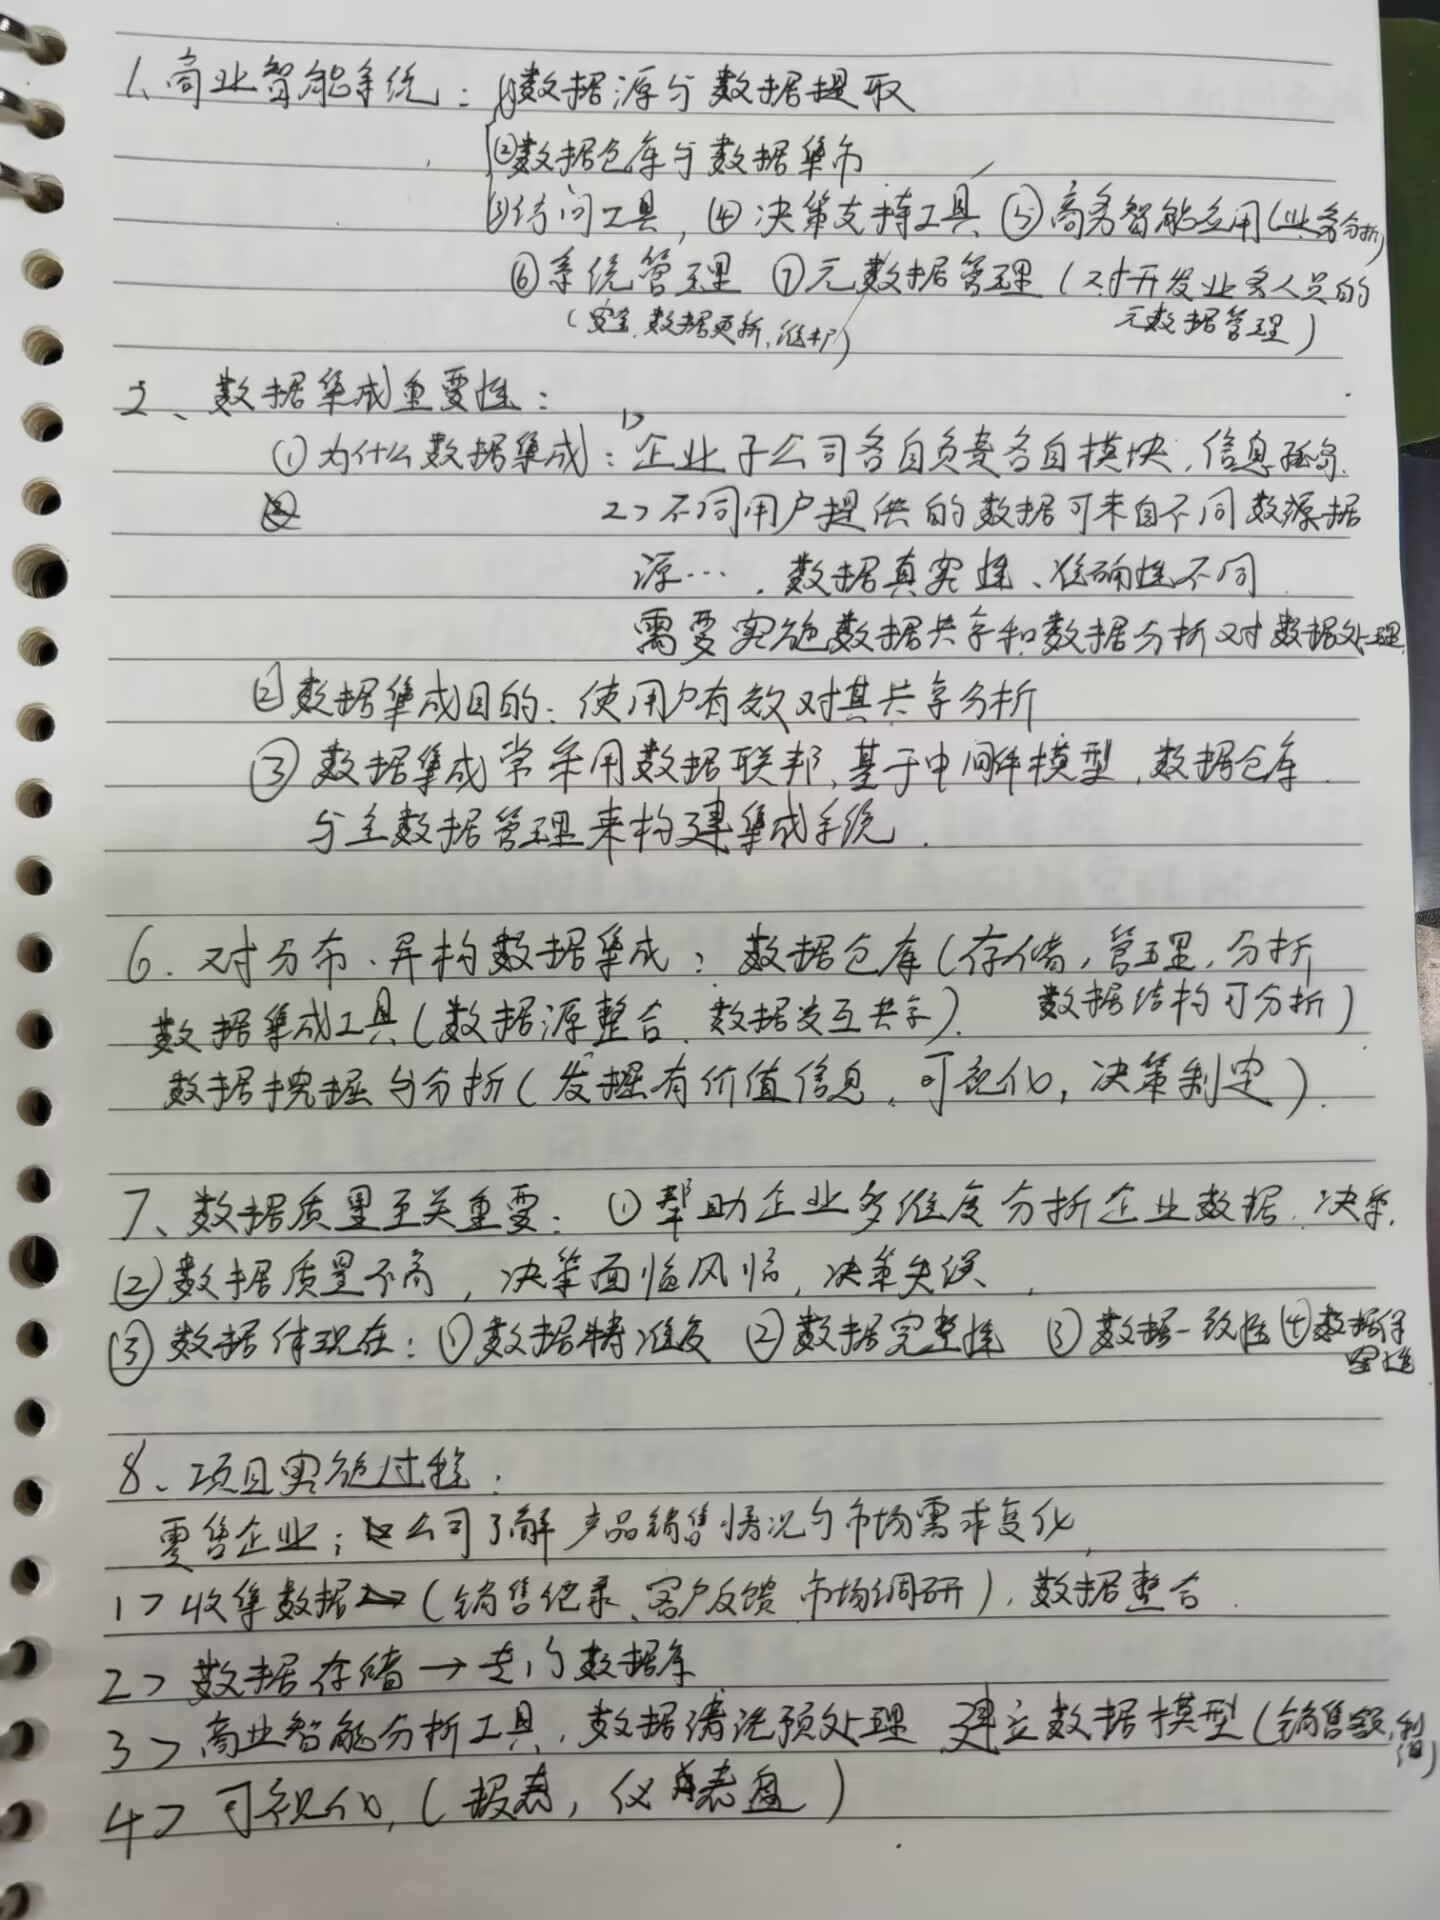 1、商业智能系统：①数据源与数据提取
②数据仓库与数据集市
③访问工具，④决策支持工具 ⑤商务智能应用(业务分析)
⑥系统管理 ⑦元数据管理（对开发业务人员的
（安全、数据更新、维护） 元数据管理）
2、数据集成重要性：
①为什么数据集成：1>企业子公司各自负责各自模块，信息孤岛.
2>不同用户提供的数据可来自不同数源据
源…，数据真实性、准确性不同
需要实施数据共享和数据分析对数据处理.
②数据集成目的：使用户有效对其共享分析
③数据集成常采用数据联邦，基于中间件模型，数据仓库
与主数据管理来构建集成系统.
6.对分布、异构数据集成：数据仓库(存储，管理，分析
数据集成工具(数据源整合、数据交互共享). 数据结构可分析)
数据挖掘与分析(发掘有价值信息，可视化，决策制定).
7、数据质量至关重要：①帮助企业多维度分析企业数据、决策.
②数据质量不高，决策面临风险，决策失误，
③数据体现在：①数据精准度 ②数据完整性 ③数据一致性 ④数据
8、项目实施过程：
零售企业：公司了解产品销售情况与市场需求变化，
1>收集数据(销售纪录、客户反馈 市场调研)，数据整合.
2>数据存储→专门数据库
3>商业智能分析工具，数据清洗预处理 建立数据模型(销售额,利润)
4>可视化，(报表，仪表盘)